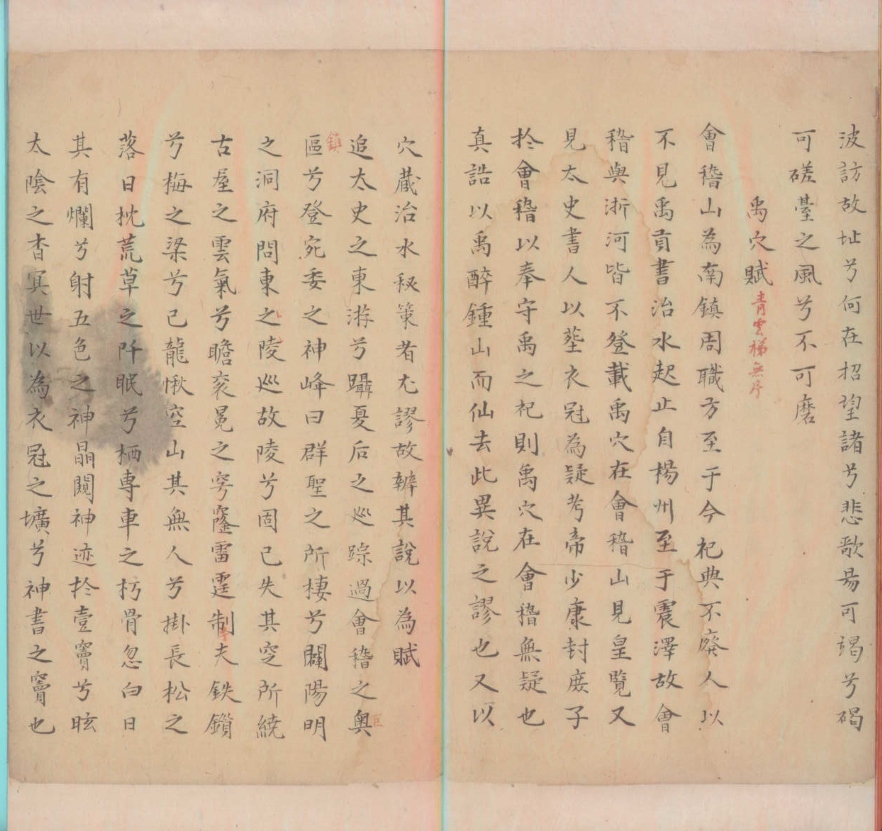 波訪故址兮何在招望諸兮悲歌易可竭兮碣
可磋臺之風兮不可磨
禹穴賦青雲梯無序
會稽山為南鎮周職方至于今祀典不廢人以
不見禹貢書治水起止自楊州至于震澤故會
稽與浙河皆不登載禹穴在會稽山見皇覽又
見太史書人以塟衣冠為疑考帝少康封庻子
扵會稽以奉守禹之祀則禹穴在會稽無疑也
真誥以禹醉鍾山而仙去此異說之謬也又以
穴蔵治水秘策者尤謬故辨其說以為賦
追太史之東游兮躡夏后之巡踪過會稽之奥
區兮登宛委之神峰曰群聖之所棲兮闢陽明
之洞府問東之陵巡故陵兮固已失其窆所繞
古屋之雲氣兮瞻衮冕之穹窿雷霆制夫鉄鎖
兮梅之梁兮已龍愀空山其無人兮掛長松之
落日枕荒草之阡眠兮栖專車之朽骨忽白日
其有爛兮射五色之神晶閟神迹扵壼竇兮眩
太陰之杳冥世以為衣冠之壙兮神書之竇也